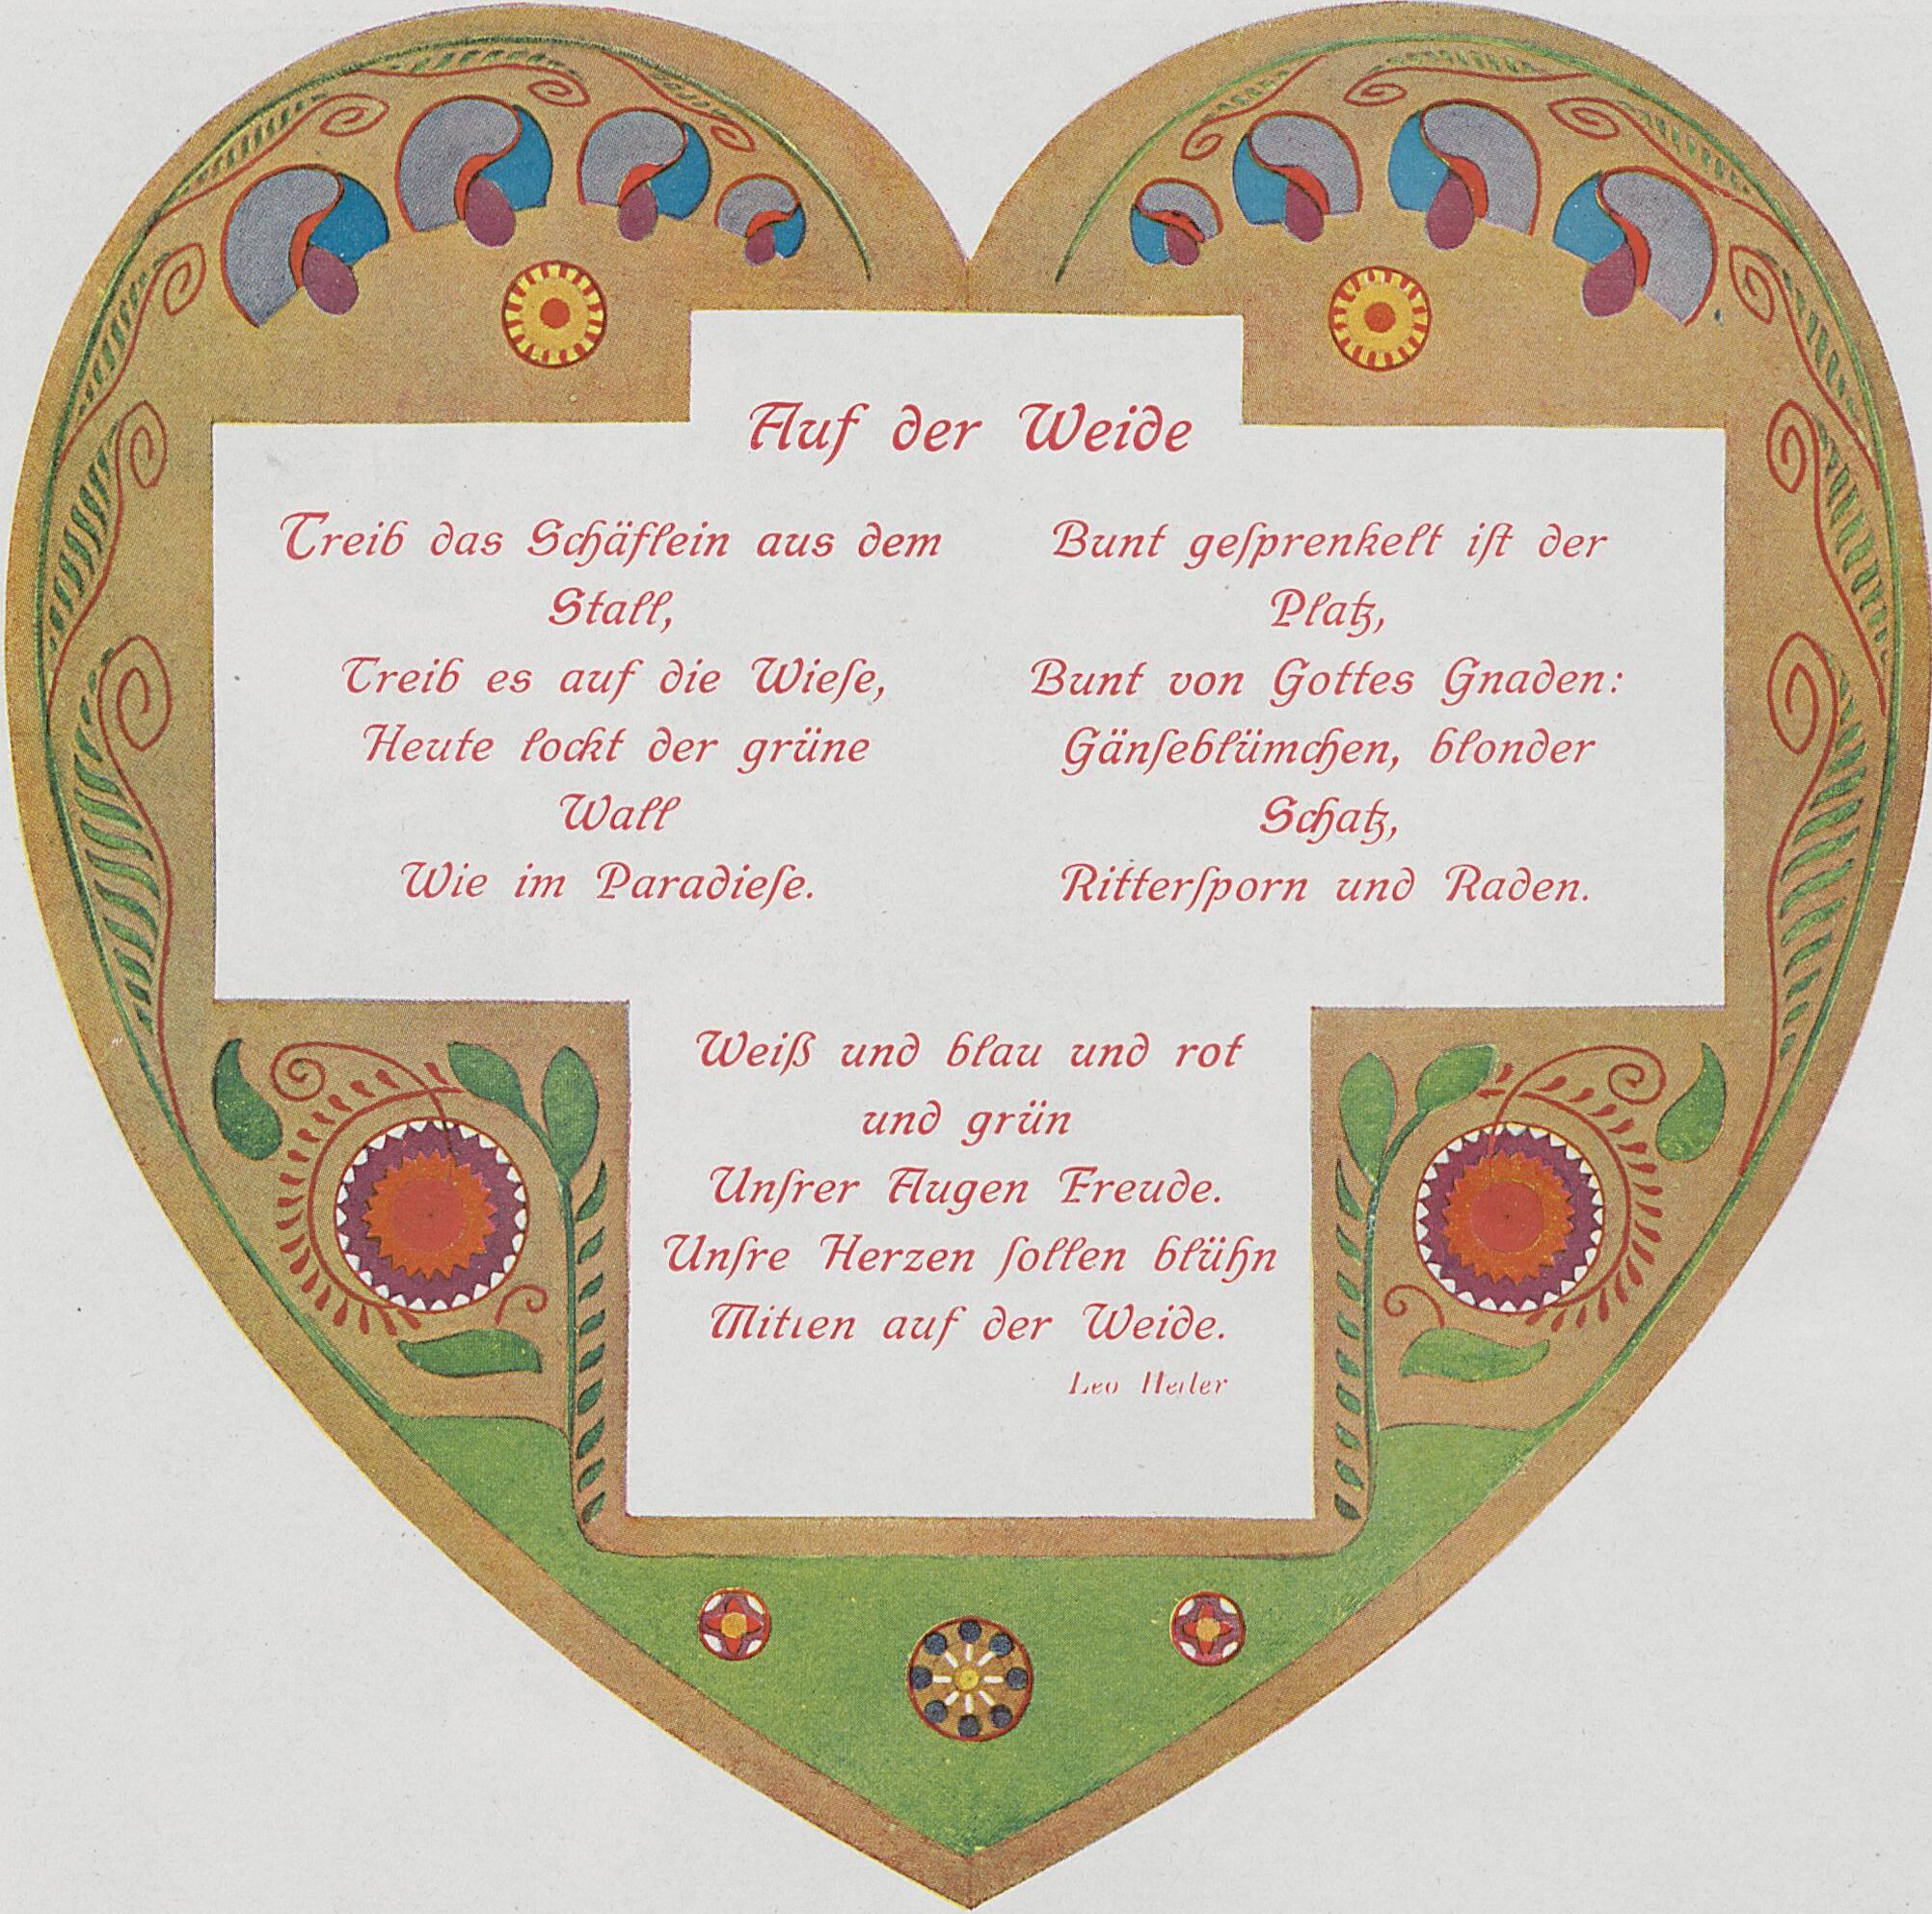 Auf der Weide
Treib das Schäflein aus dem
Stall,
Treib es auf die Wieſe,
Heute lockt der grüne
Wall
Wie im Paradieſe.
Bunt geſprenkelt iſt der
Platz,
Bunt von Gottes Gnaden:
Gänſeblümchen, blonder
Schatz,
Ritterſporn und Raden.
Weiß und blau und rot
und grün
Unſrer Augen Freude.
Unſre Herzen ſollen blühn
Mitten auf der Weide.
Leo Heller